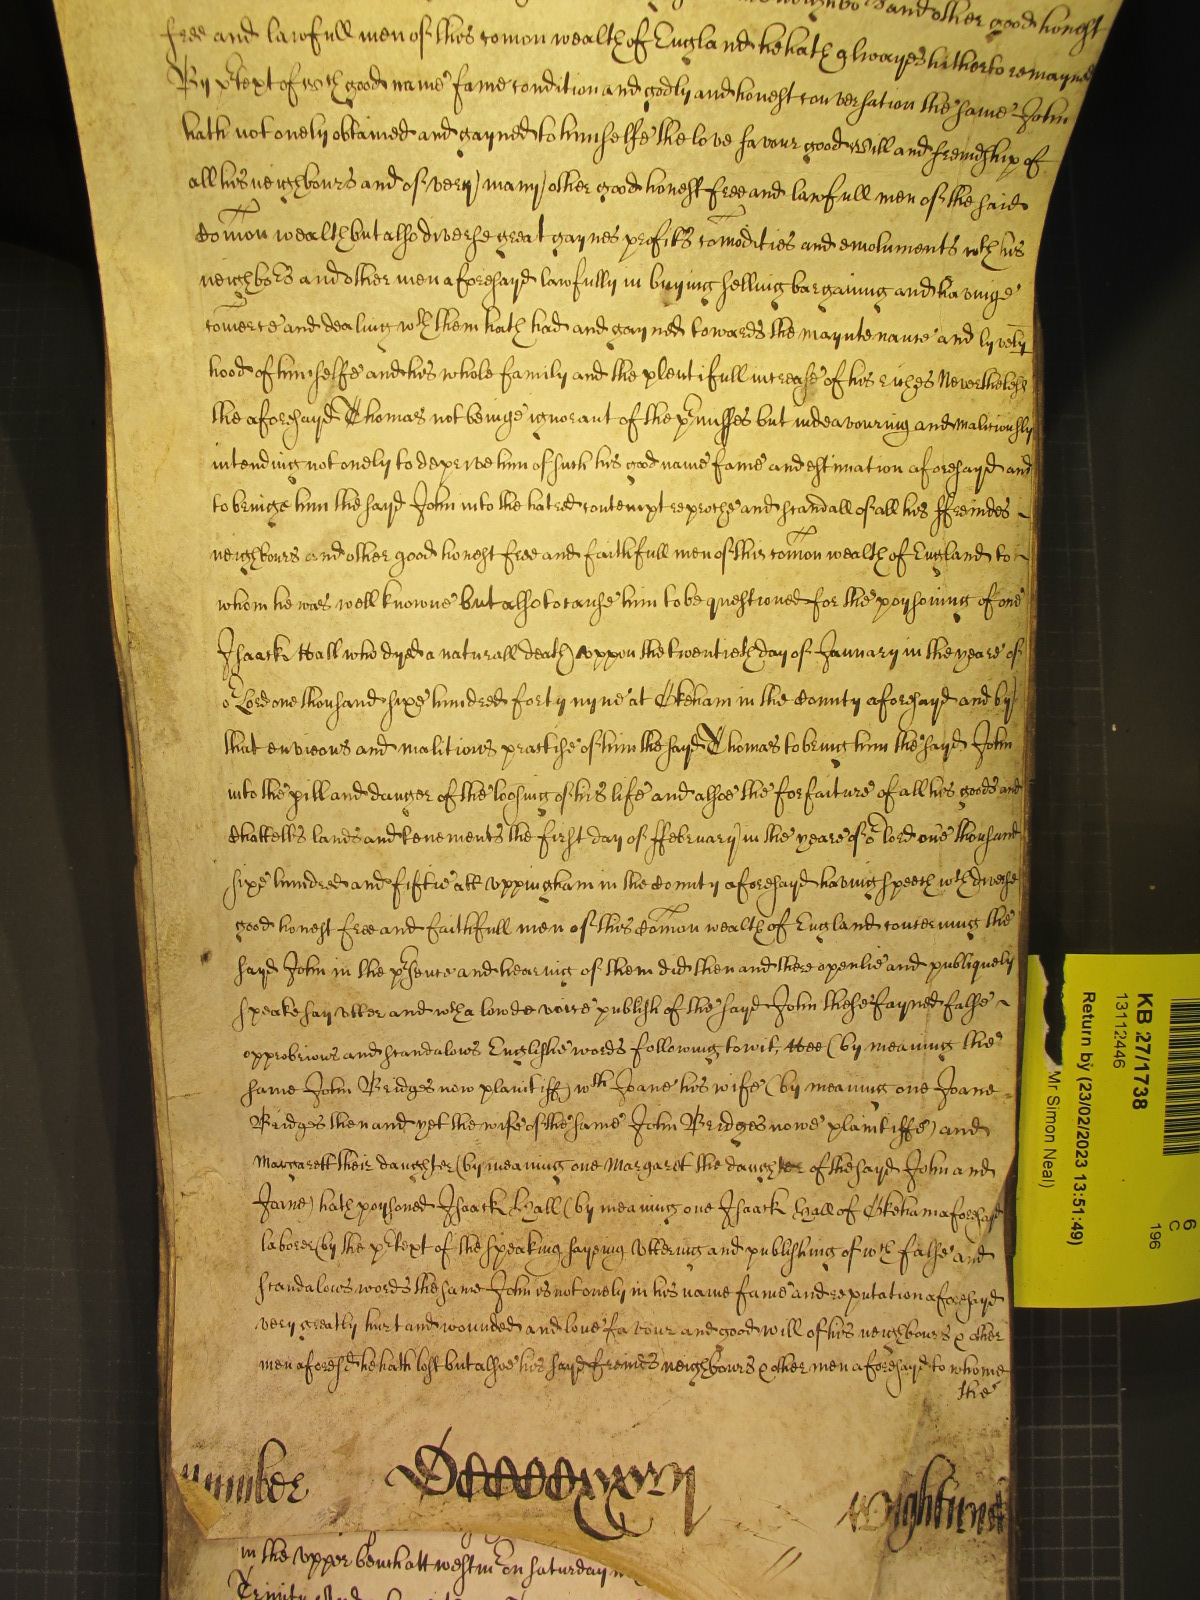 and other good honest
free and lawfull men of this comon wealth of England he hath alwayes hitherto remayned
By ptext of wch good name fame condition and godly and honest conversation the same John
hath not onely obtained and gayned to himselfe the love favour good will and freindship of
all his neighbours and of very many other good honest free and lawfull men of the said
Comon wealth but also diverse great gaynes profitts comodities and emoluments wth his
neighbors and other men aforesayd lawfully in buying selling bargaining and havinge
comerce and dealing wth them hath had and gayned towards the mayntenance and lyvely
hood of himselfe and his whole family and the plentifull increase of his riches Neverthelesse
the aforesayd Thomas not beinge ignorant of the pmisses but indeavouring and malitiously
intending not onely to deprive him of such his good name fame and estimation aforesayd and
to bringe him the sayd John into the hatred contempt reproche and scandall of all his ffreindes
neighbours and other good honest free and faithfull men of this comon wealth of England to
whom he was well knowne but also to cause him to be questioned for the poysoning of one
Isaack Hall who dyed a naturall death uppon the twentieth day of January in the yeare of
or Lord one thousand sixe hundred forty nyne at Okeham in the County aforesayd and by
that envieous and malitious practise of him the sayd Thomas to bring him the sayd John
into the pill and danger of the loosing of his life and alsoe the forfaiture of all his goods and
Chattells lands and tenements the first day of ffebruary in the yeare of or lord one thousand
sixe hundred and fiftie att Uppingham in the County aforesayd having speech wth diverse
good honest free and faithfull men of this Comon wealth of England concerning the
sayd John in the psence and hearing of them did then and there openlie and publiquely
speake say utter and with a lowde voice publish of the sayd John these fayned false
opprobrious and scandalous Englishe words following to wit, Hee (by meaning the
same John Bridges now plaintiff) wth Joane his wife (by meaning one Joane
Bridges then and yet the wife of the same John Bridges nowe plaintiffe) and
Margarett their daughter (by meaning one Margaret the daughter of the sayd John and
Jane) hath poysoned Isaack Hall (by meaning one Isaack Hall of Okeham aforesayd
laborer) by the ptext of the speaking sayeing uttering and publishing of wch false and
scandalous words the same John is not onely in his name fame and reputation aforesayd
very greatly hurt and wounded and love favour and good will of his neighbours & other
men aforesd he hath lost but alsoe his sayd freinds neighbours & other men aforesayd to whome
the
number DCCCCCxxxvj Wightwick
in the upper bench att westmr on saturday
Trinity
KB 27/1738
13112446
Return by (23/02/2023 13:51:49)
Mr Simon Neal)
6
C
196